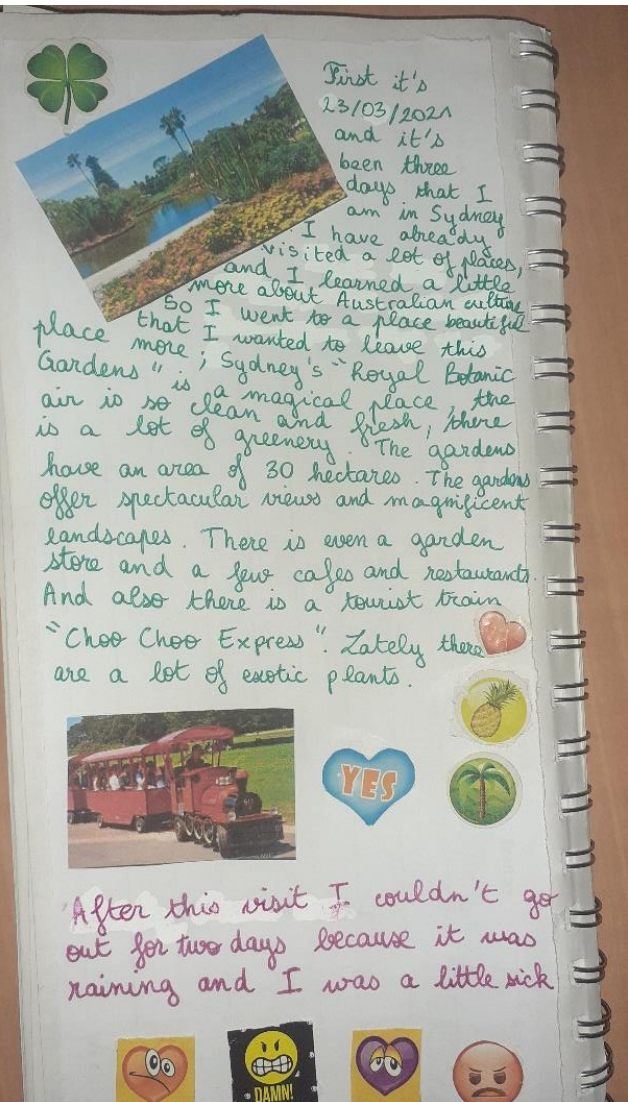 First it's
23/03/2021
and it's
been three
days that I
am in Sydney
I have already
visited a lot of places,
and I learned a little
more about Australian culture
So I went to a place beautiful
place that I wanted to leave this
more ; Sydney's "Royal Botanic
Gardens" is a magical place, the
air is so clean and fresh, there
is a lot of greenery. The gardens
have an area of 30 hectares. The gardens
offer spectacular views and magnificent
landscapes. There is even a garden
store and a few cafes and restaurants.
And also there is a tourist train
"Choo Choo Express". Lately there
are a lot of exotic plants.
YES
After this visit I couldn't go
out for two days because it was
raining and I was a little sick
DAMN!